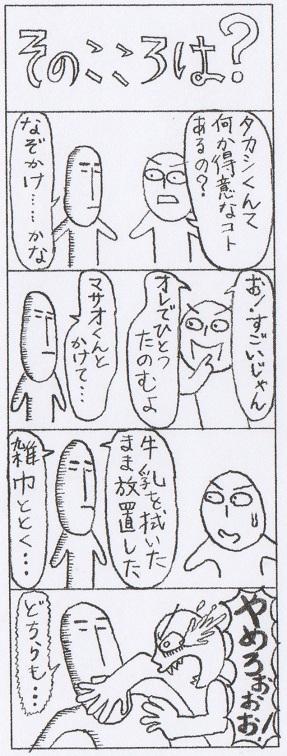 そのこころは？
タカシくんて
何か得意なコト
あるの？
なぞかけ……かな
お！すごいじゃん
オレでひとつ
たのむよ
マサオくんと
かけて…
牛乳を拭いた
まま放置した
雑巾ととく…
やめろぉぉぉ！
どちらも…